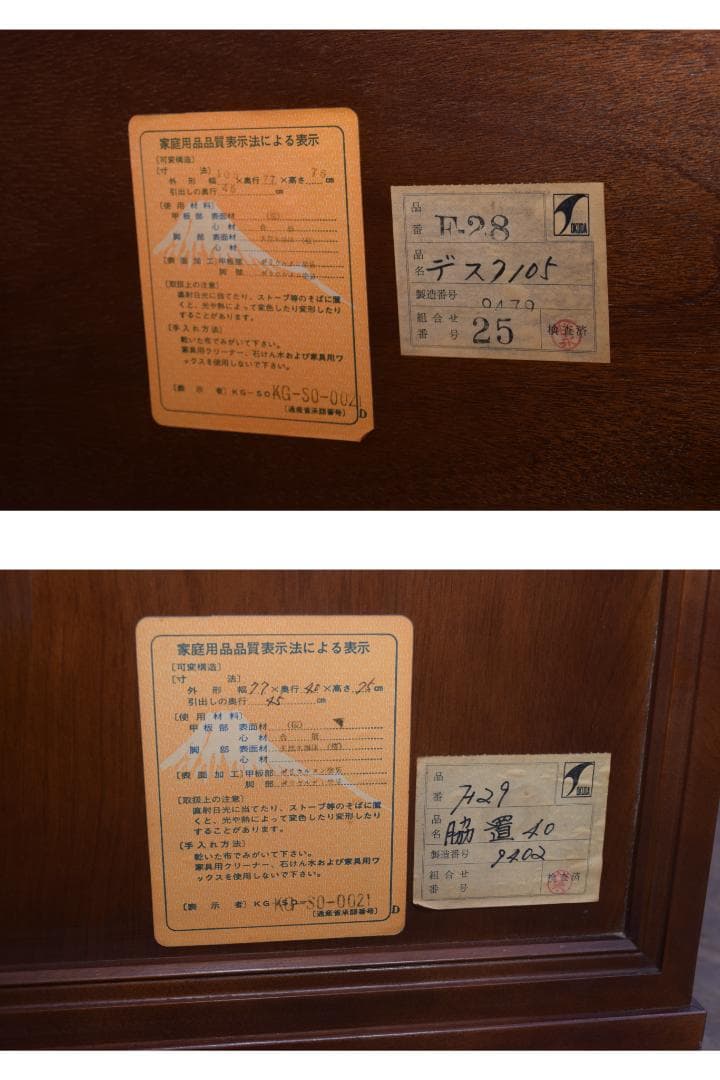 家庭用品品質表示法による表示
[可変構造]
[寸 法]
外形 幅 ×奥行 77 ×高さ 76 cm
引出しの奥行 46 cm
[使用材料]
甲板部 表面材 (桜)
心材 合板
脚部 表面材 天然木単板 (桜)
心材
[表面加工] 甲板部 ポリウレタン樹脂
脚部 ポリウレタン樹脂
[取扱上の注意]
直射日光に当てたり、ストーブ等のそばに置
くと、光や熱によって変色したり変形したり
することがあります。
[手入れ方法]
乾いた布でみがいて下さい。
家具用クリーナー、石けん水および家具用ワ
ックスを使用しないで下さい。
[表示者] KG-SO KG-SO-0021
[通産省承認番号] D
品番 F-28
IKUDA
品名 デスク105
製造番号 9479
組合せ番号 25 検査済
家庭用品品質表示法による表示
[可変構造]
[寸 法]
外形 幅 77 ×奥行 48 ×高さ 75 cm
引出しの奥行 45 cm
[使用材料]
甲板部 表面材 (桜)
心材 合板
脚部 表面材 天然木単板 (桜)
心材
[表面加工] 甲板部 ポリウレタン樹脂
脚部 ポリウレタン樹脂
[取扱上の注意]
直射日光に当てたり、ストーブ等のそばに置
くと、光や熱によって変色したり変形したり
することがあります。
[手入れ方法]
乾いた布でみがいて下さい。
家具用クリーナー、石けん水および家具用ワ
ックスを使用しないで下さい。
[表示者] KG-SO-0021
[通産省承認番号] D
品番 F-29
IKUDA
品名 脇置40
製造番号 9402
組合せ番号 検査済